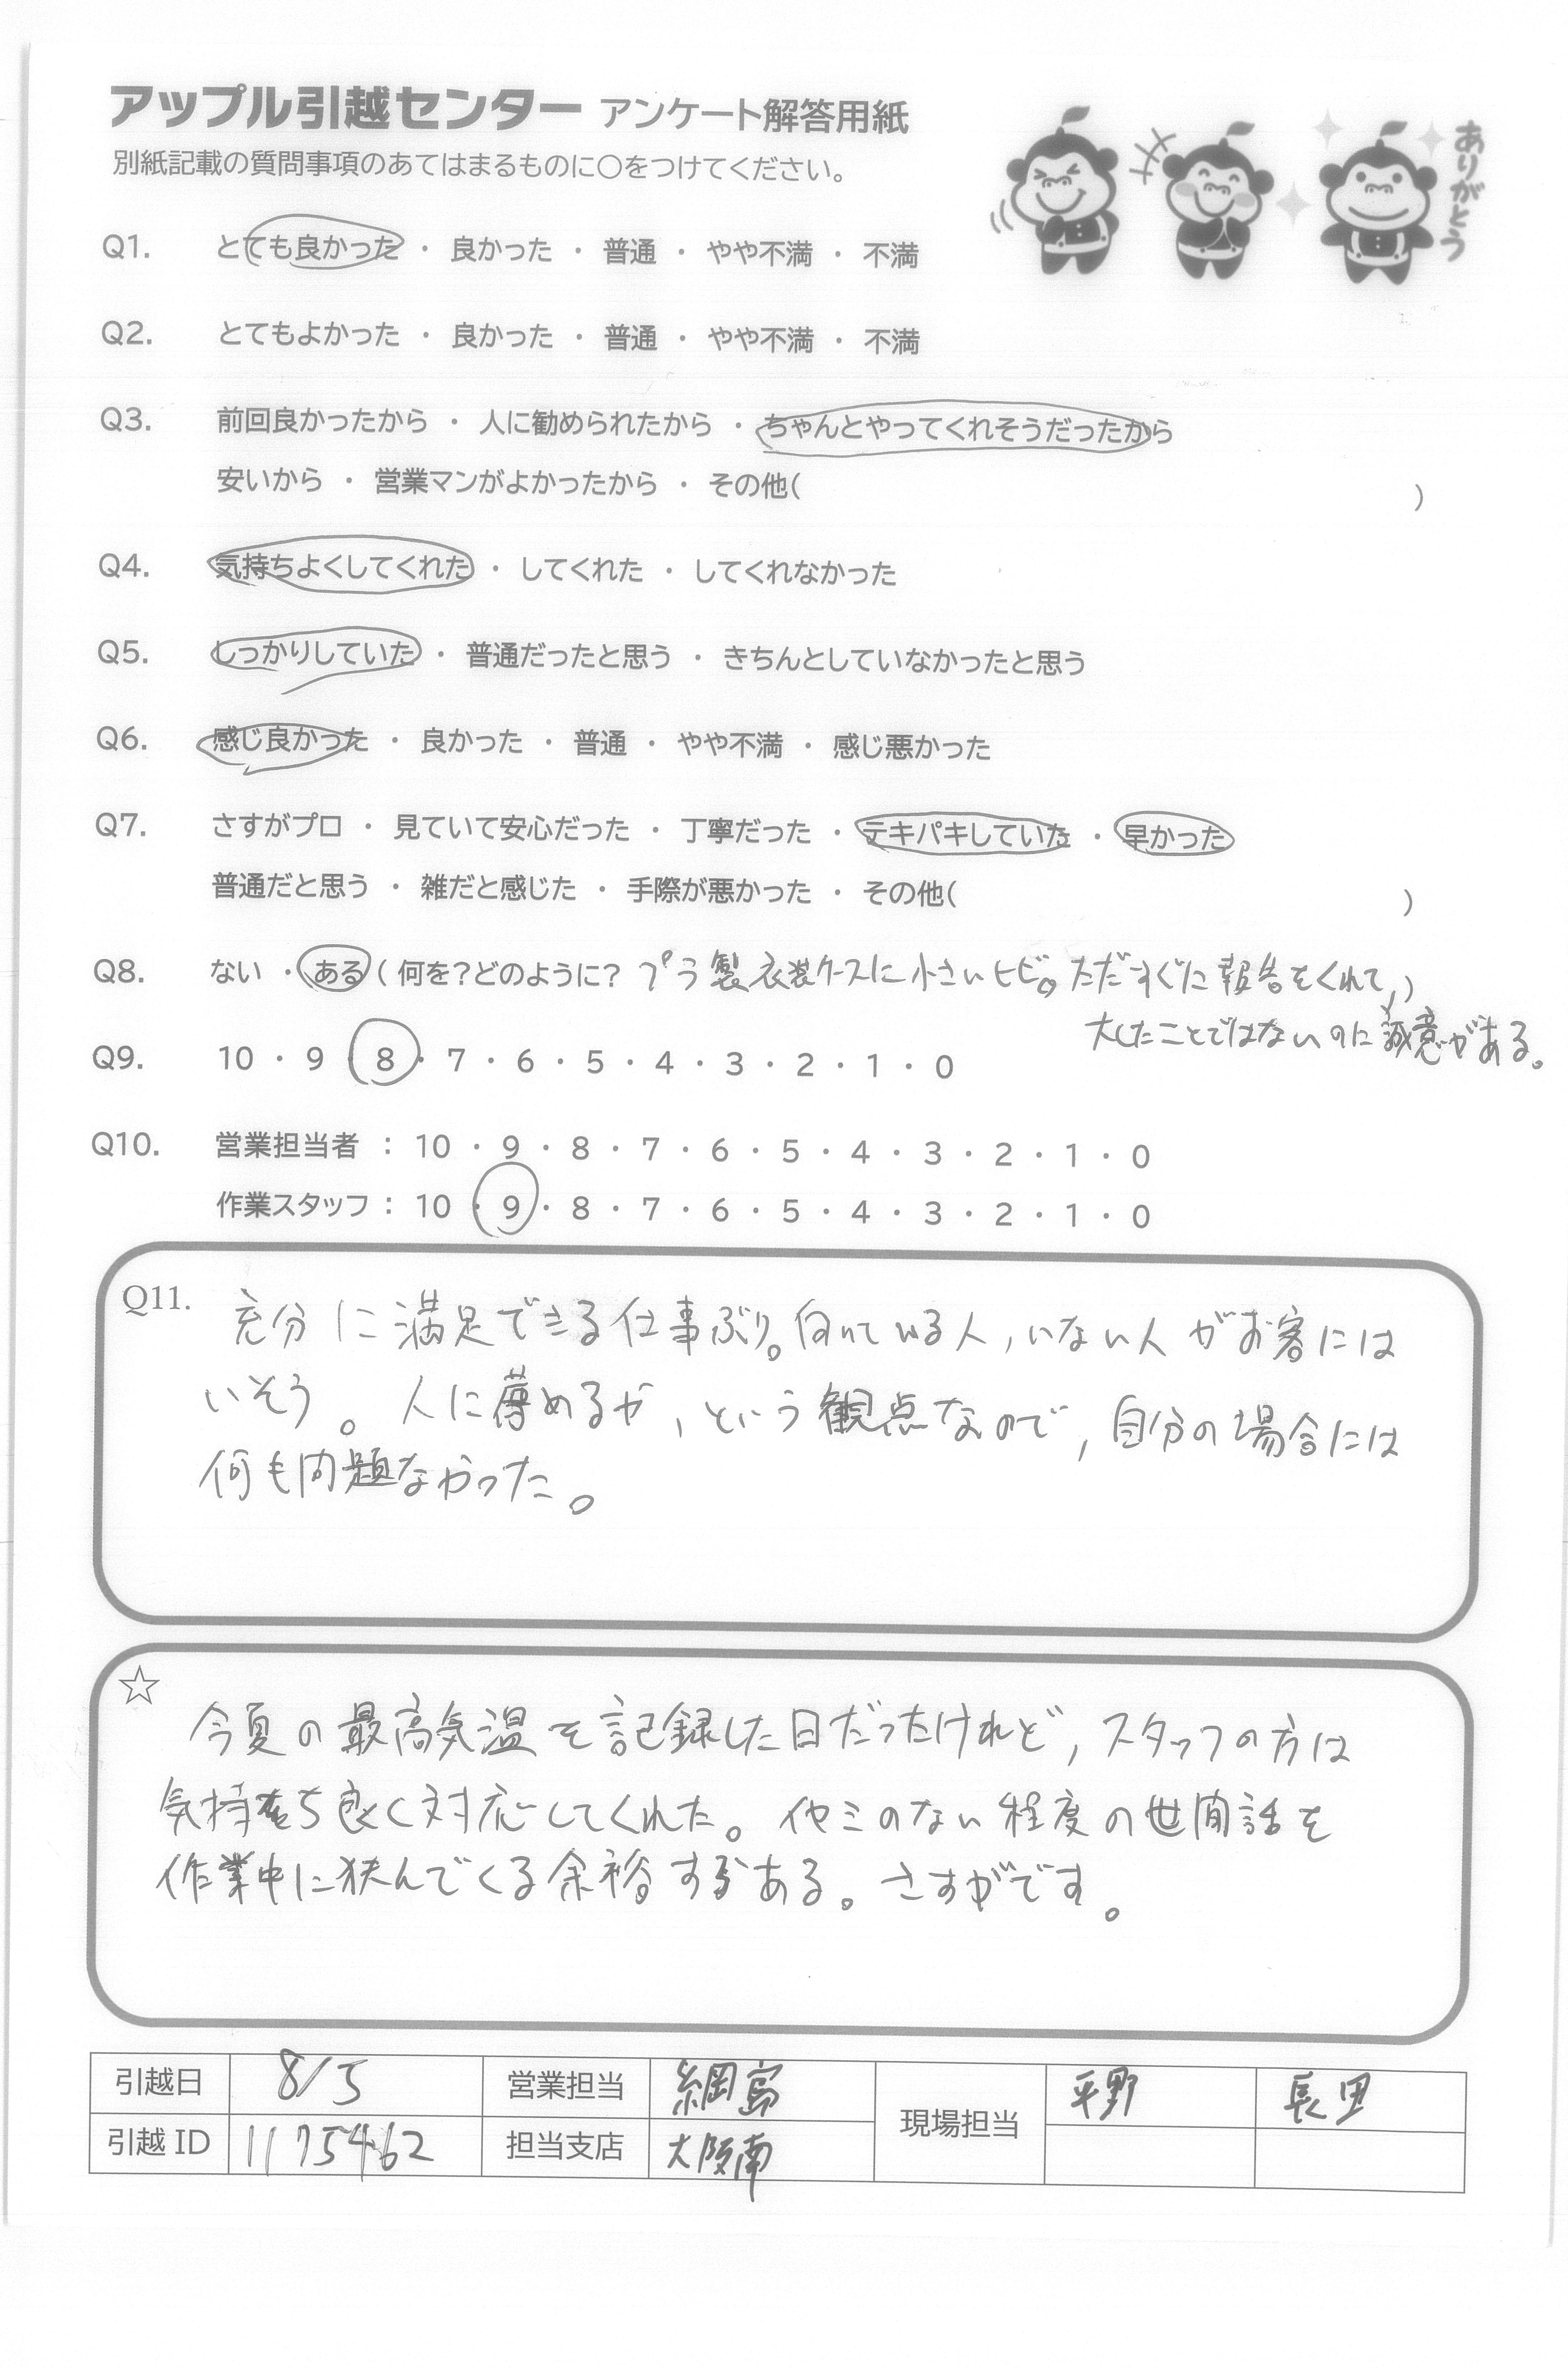 アップル引越センター アンケート解答用紙
別紙記載の質問事項のあてはまるものに〇をつけてください。
ありがとう
Q1. とても良かった ・ 良かった ・ 普通 ・ やや不満 ・ 不満
Q2. とてもよかった ・ 良かった ・ 普通 ・ やや不満 ・ 不満
Q3. 前回良かったから ・ 人に勧められたから ・ ちゃんとやってくれそうだったから
安いから ・ 営業マンがよかったから ・ その他( )
Q4. 気持ちよくしてくれた ・ してくれた ・ してくれなかった
Q5. しっかりしていた ・ 普通だったと思う ・ きちんとしていなかったと思う
Q6. 感じ良かった ・ 良かった ・ 普通 ・ やや不満 ・ 感じ悪かった
Q7. さすがプロ ・ 見ていて安心だった ・ 丁寧だった ・ テキパキしていた ・ 早かった
普通だと思う ・ 雑だと感じた ・ 手際が悪かった ・ その他( )
Q8. ない ・ ある ( 何を?どのように? プラ製衣装ケースに小さいヒビ。ただすぐに報告をくれて、)
大したことではないのに誠意がある。
Q9. 10 ・ 9 ・ 8 ・ 7 ・ 6 ・ 5 ・ 4 ・ 3 ・ 2 ・ 1 ・ 0
Q10. 営業担当者 : 10 ・ 9 ・ 8 ・ 7 ・ 6 ・ 5 ・ 4 ・ 3 ・ 2 ・ 1 ・ 0
作業スタッフ : 10 ・ 9 ・ 8 ・ 7 ・ 6 ・ 5 ・ 4 ・ 3 ・ 2 ・ 1 ・ 0
Q11. 充分に満足できる仕事ぶり。向いている人, いない人がお客には
いそう。人に薦めるか, という観点なので, 自分の場合には
何も問題なかった。
☆
今夏の最高気温を記録した日だったけれど, スタッフの方は
気持ち良く対応してくれた。イヤミのない程度の世間話を
作業中に挟んでくる余裕すらある。さすがです。
引越日 8/5 営業担当 綱島 現場担当 平野 長田
引越 ID 1175462 担当支店 大阪南